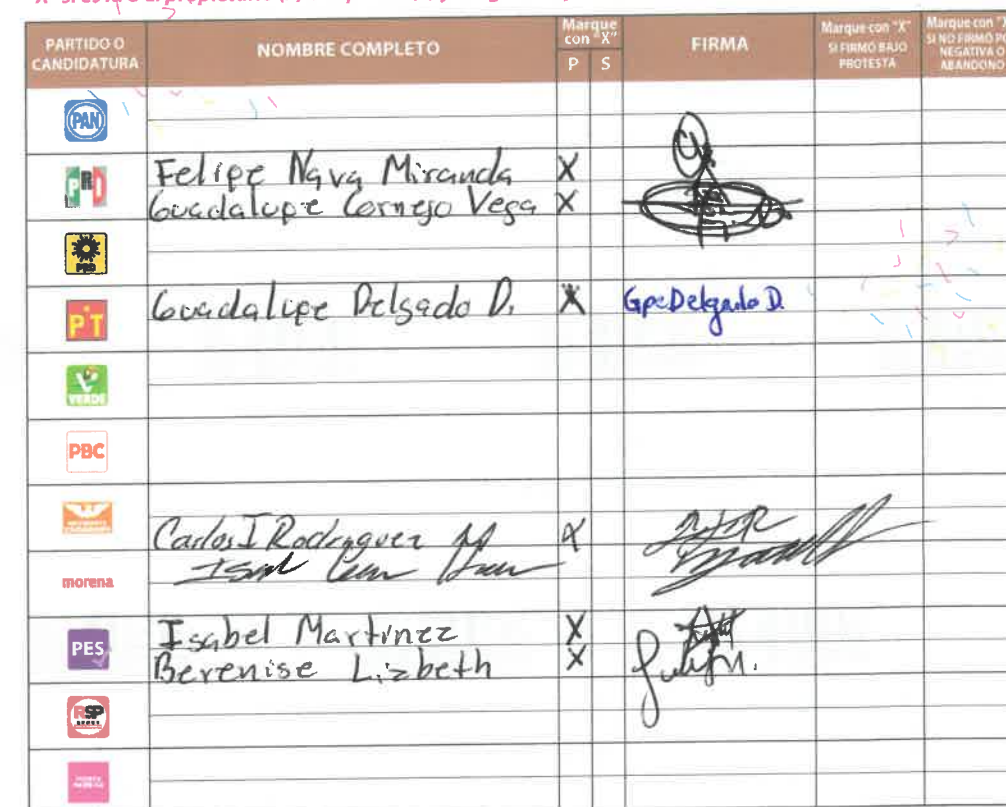 PARTIDO O CANDIDATURA
NOMBRE COMPLETO
Marque con "X"
P S
FIRMA
Marque con "X" SI FIRMÓ BAJO PROTESTA
Marque con "X" SI NO FIRMÓ PO NEGATIVA O ABANDONO
PAN
PRI
Felipe Nava Miranda X
Guadalupe Cornejo Vega X
PRD
PT
Guadalupe Delgado D. X Gpe Delgado D.
VERDE
PBC
Carlos I Rodriguez M X
morena
PES
Isabel Martinez X
Berenise Lizbeth X
RSP